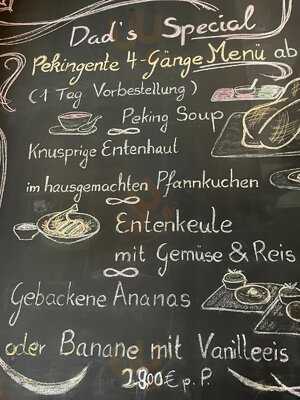 Dad's Special
Pekingente 4-Gänge Menü ab
(1 Tag Vorbestellung)
Peking Soup
Knusprige Entenhaut
im hausgemachten Pfannkuchen
Entenkeule
mit Gemüse & Reis
Gebackene Ananas
oder Banane mit Vanilleeis
p. P.